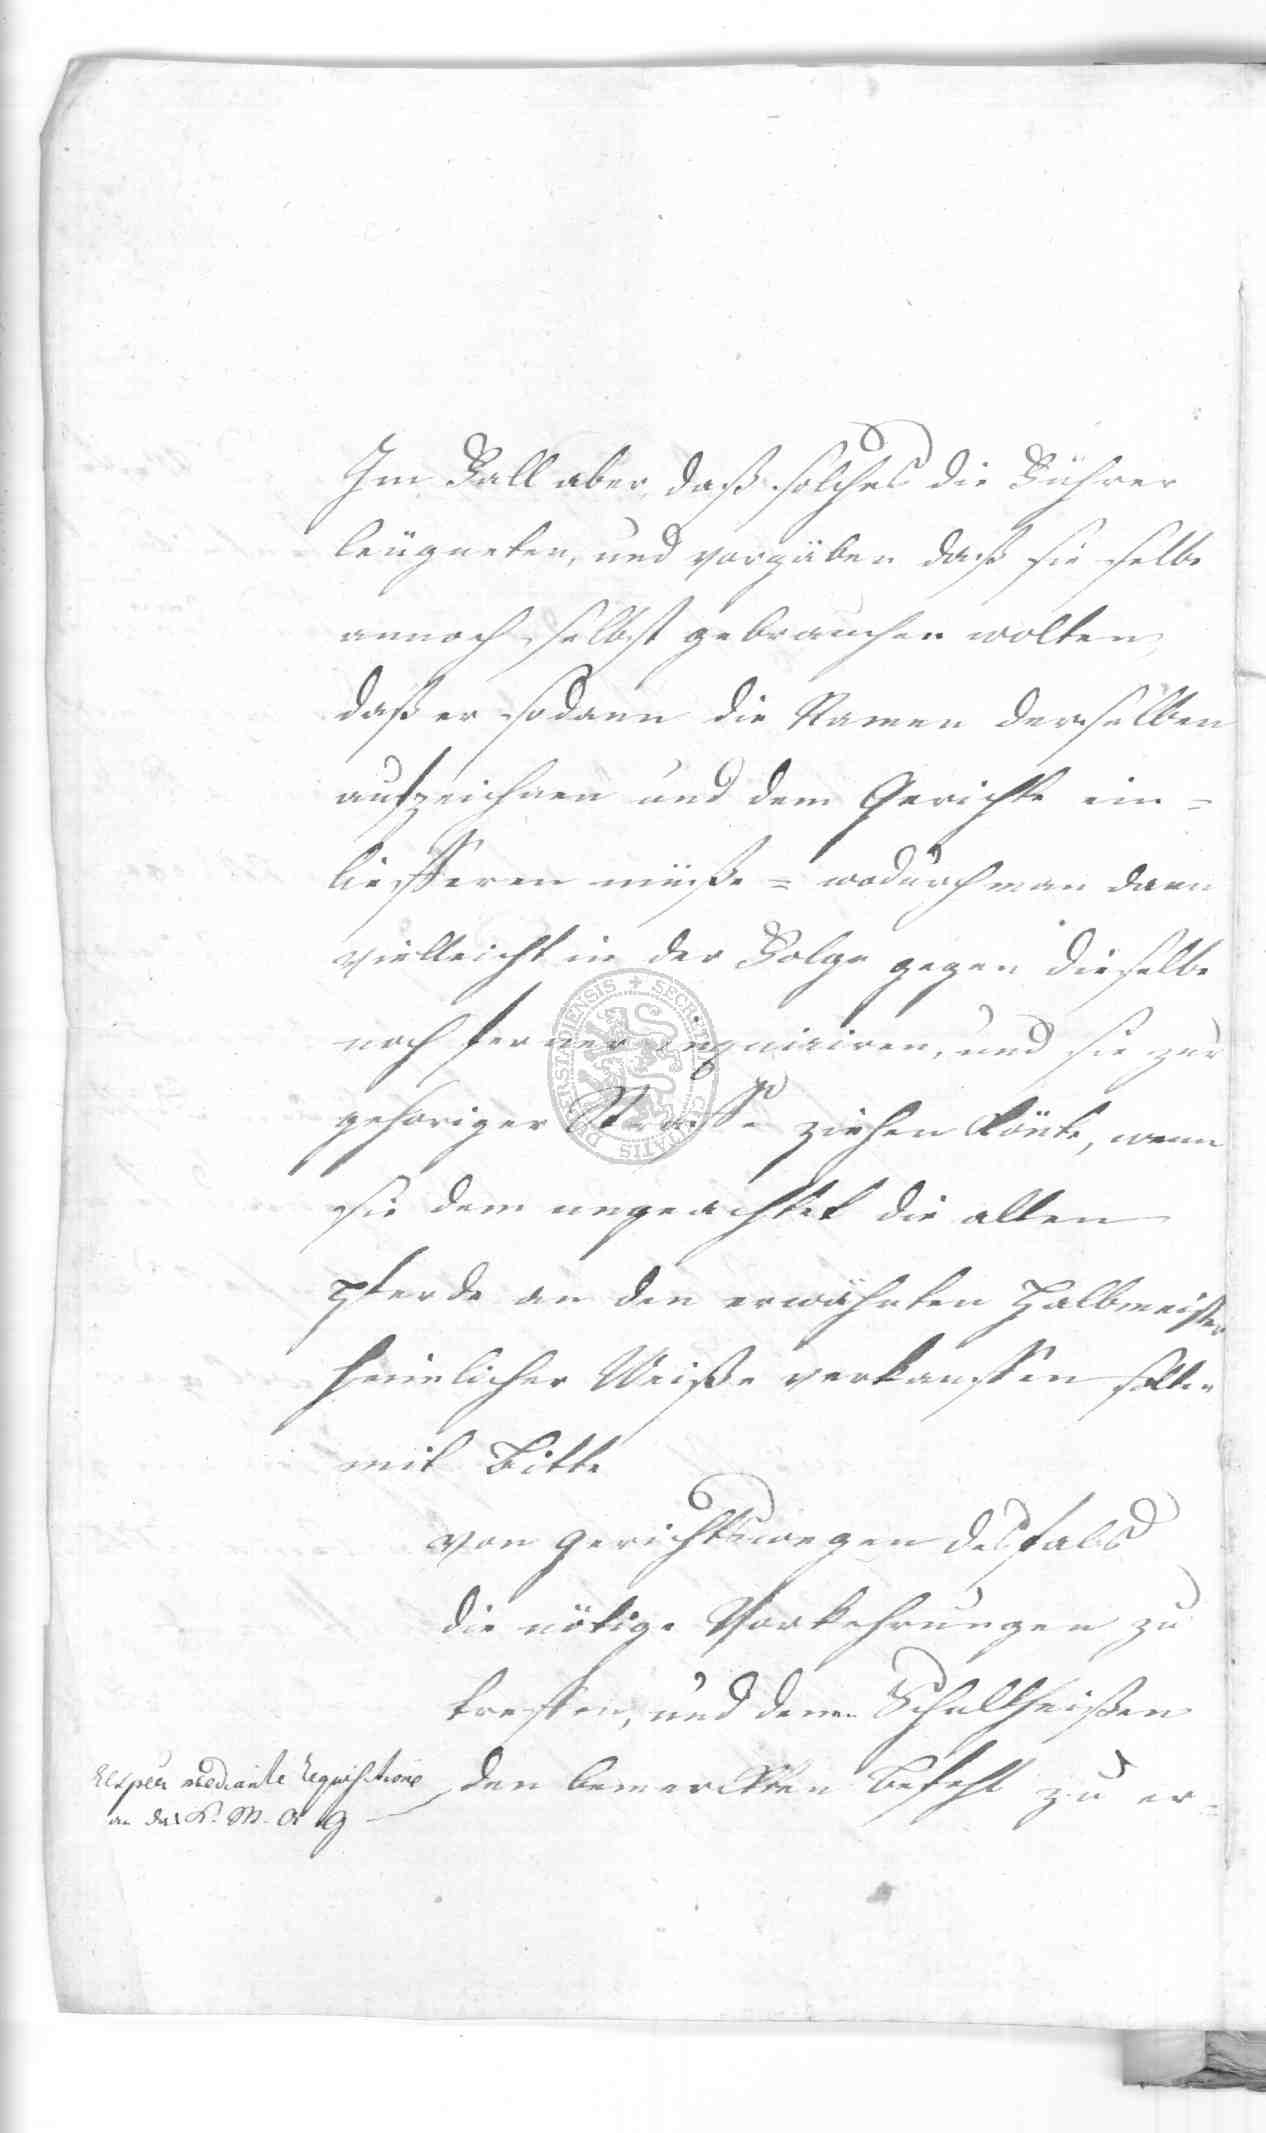 Im Fall aber, daß solches die Führer
leügneten, und vorgäben daß sie selbe
annoch selbst gebrauchen wolten,
daß er sodann die Namen derselben
aufzeichnen und dem Gerichte ein=
liefferen müße = wodurch man dann
vielleicht in der Folge gegen dieselbe
noch ferner inquiriren, und sie zur
gehöriger Straffe ziehen könte, wenn
sie dem ungeachtet die alten
Pferde an den erwähnten Halbmeister
heimlicher Weiße verkauffen solten
mit Bitte
von gerichtswegen desfals
die nötige Vorkehrungen zu
treffen, und denen Schultheißen
den bemerckten Befehl zu er=
mediante requisitione
an das
SECRETUM CIVITATIS DUDERSTADIENSIS